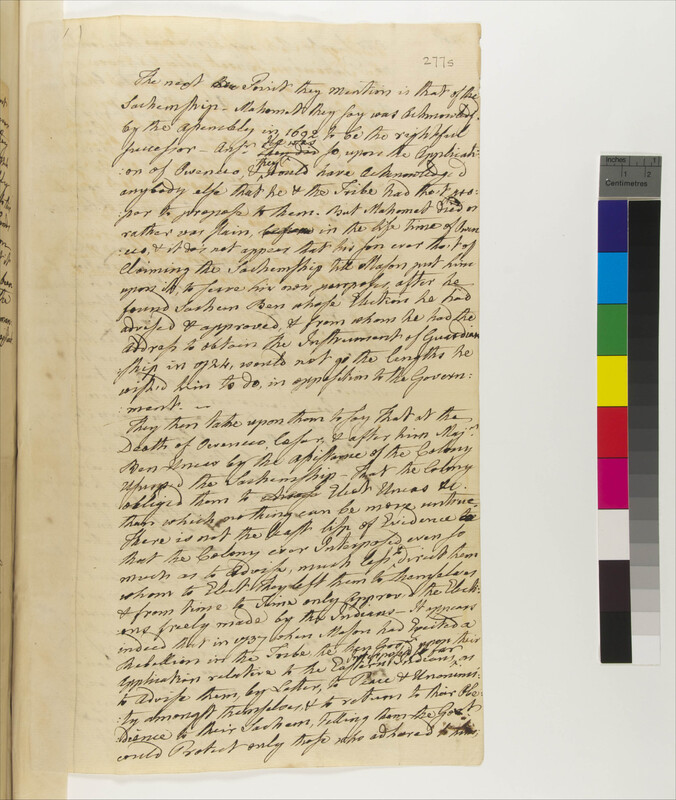 2775
The next Point they mention is that of the
Sachemship - Mahomet they say was Acknowledgd
by the Assembly in 1692 to be the rightful
Successor - Ansr. He was so, upon the Applicati-
:on of Oweneco, & they would have Acknowledged
anybody else that he & the Tribe had tho't pro-
:per to propose to them. But Mahomet died or
rather was slain, in the life time of Owen
:eco, & it does not appear that his son ever tho't of
Claiming the Sachemship till Mason put him
upon it, to serve his own purposes, after he
found Sachem Ben whose Election he had
advised & approved, & from whom he had the
address to obtain the Instrument of Guardian
ship in 1724, would not go the lengths he
wished him to do, in opposition to the Govern:
:ment. -
They then take upon them to say that at the
Death of Oweneco Cesar, & after him Majr.
Ben Uncas by the Assistance of the Colony
Usurped the Sachemship - That the Colony
obliged them to Elect Uncas &c.
than which nothing can be more untrue -
There is not the least lisp of Evidence
that the Colony ever Interposed even so
much as to Advise, much less to direct them
whom to Elect they left them to themselves
& from time to Time only approvd the Electi-
ons freely made by the Indians - It appears
indeed that in 1737 when Mason had Excited a
Rebellion in the Tribe, the then Govr. upon their
Application relative to the Eastern Indians, interposed so far as
to Advise them, by Letter, to Peace & Unanimi-
:ty amongst themselves & to return to their Obe-
dience to their Sachem, Telling them the Govt.
could Protect only those who adhered to him
Inches
1
2
Centimetres